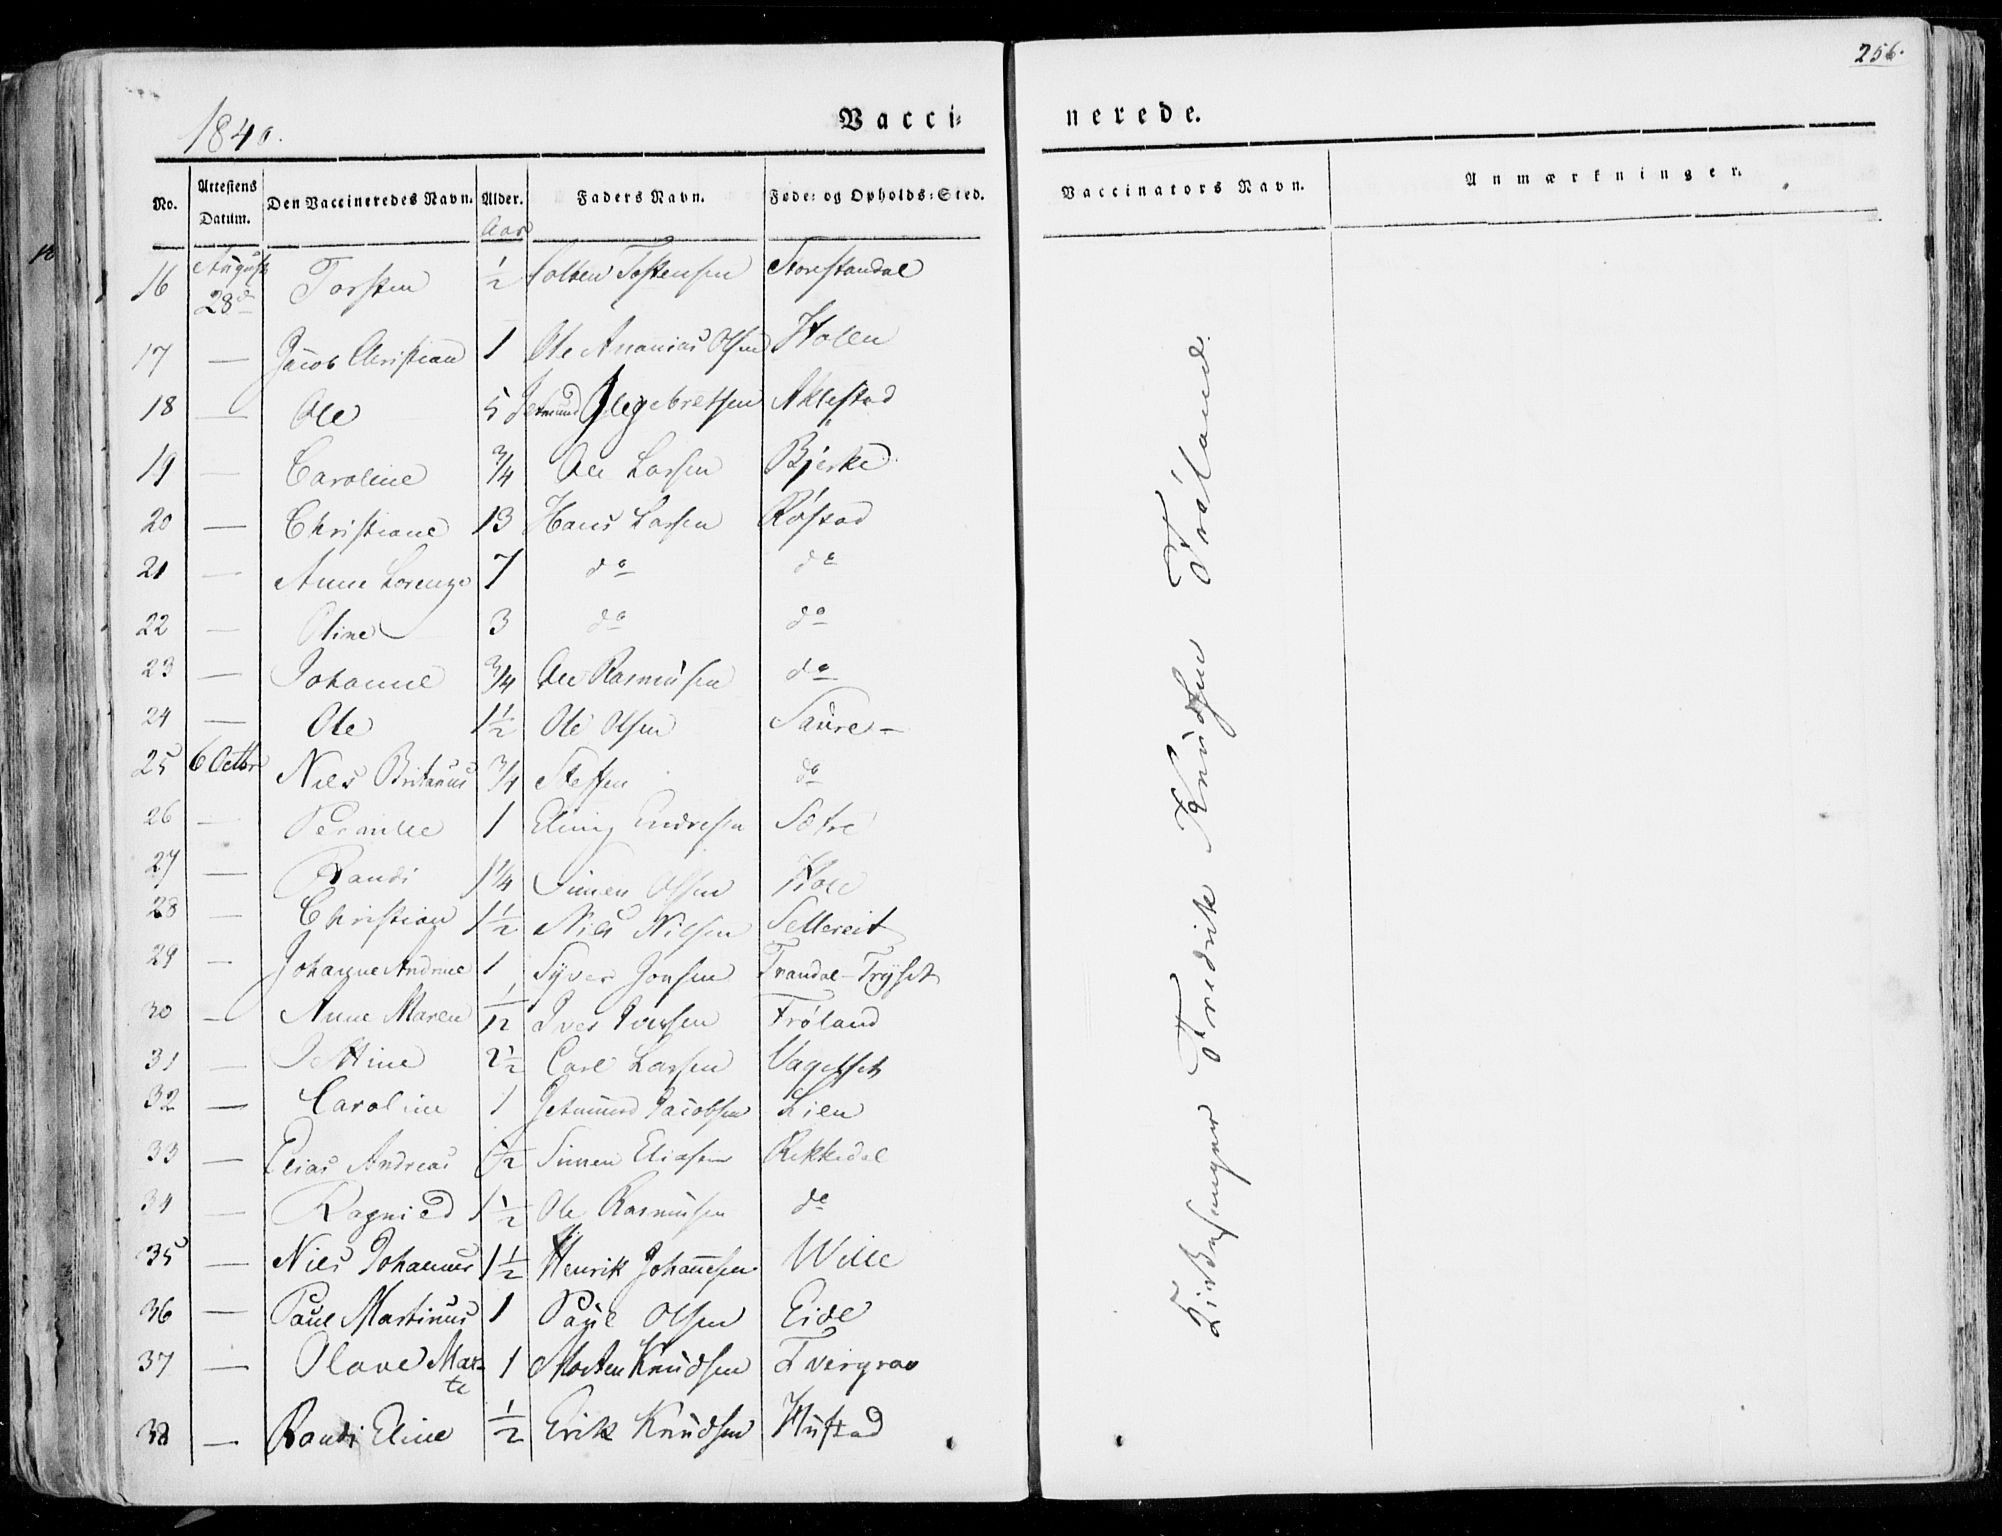 256.
1840.
Vacci- nerede.
No. Attestens Datum. Den Vaccineredes Navn. Alder. Faders Navn. Føde- og Opholds-Sted. Vaccinators Navn. Anmærkninger.
Aar
16 August 28de Torsten 1/2 Tostensen Storestandal
17 — Jacob Christian 1 Ole Ananias Olsen Holen
18 — Ole 5 Jetmund Ingebretsen Aklestad
19 — Caroline 3/4 Ole Larsen Bjerke
20 — Christiane 13 Hans Larsen Røstad
21 — Anne Lorenze 7 do do
22 — Oline 3 do do
23 — Johanne 3/4 Ole Rasmusen do
24 — Ole 1 1/2 Ole Olsen Saure
25 6 Octbr Niels Britanus 3/4 Steffen do
26 — Pernille 1 Elling Endresen Sætre
27 — Randi 1 1/4 Simen Olsen Hole
28 — Christian 1 1/2 Niels Nielsen Sellereit
29 — Johanne Andrine 1 Syver Jonsen Trandal-Tryset
30 — Anne Maren 1/12 Iver Iversen Frøland
31 — Jettine 2 1/2 Carl Larsen Vagelset
32 — Caroline 1 Jetmund Jacobsen Lien
33 — Elias Andreas 1/2 Simen Eliasen Rekkedal
34 — Ragnied 1 1/2 Ole Rasmusen do
35 — Niels Johannes 1 1/2 Henrik Johannesen Wille
36 — Paul Martinus 1 Paul Olsen Eide
37 — Olave Marte 1 Morten Knudsen Tvergrov
38 — Randi Eline 1/2 Erik Knudsen Hustad
Kirkesanger Fredrik Knudsen Frøland.